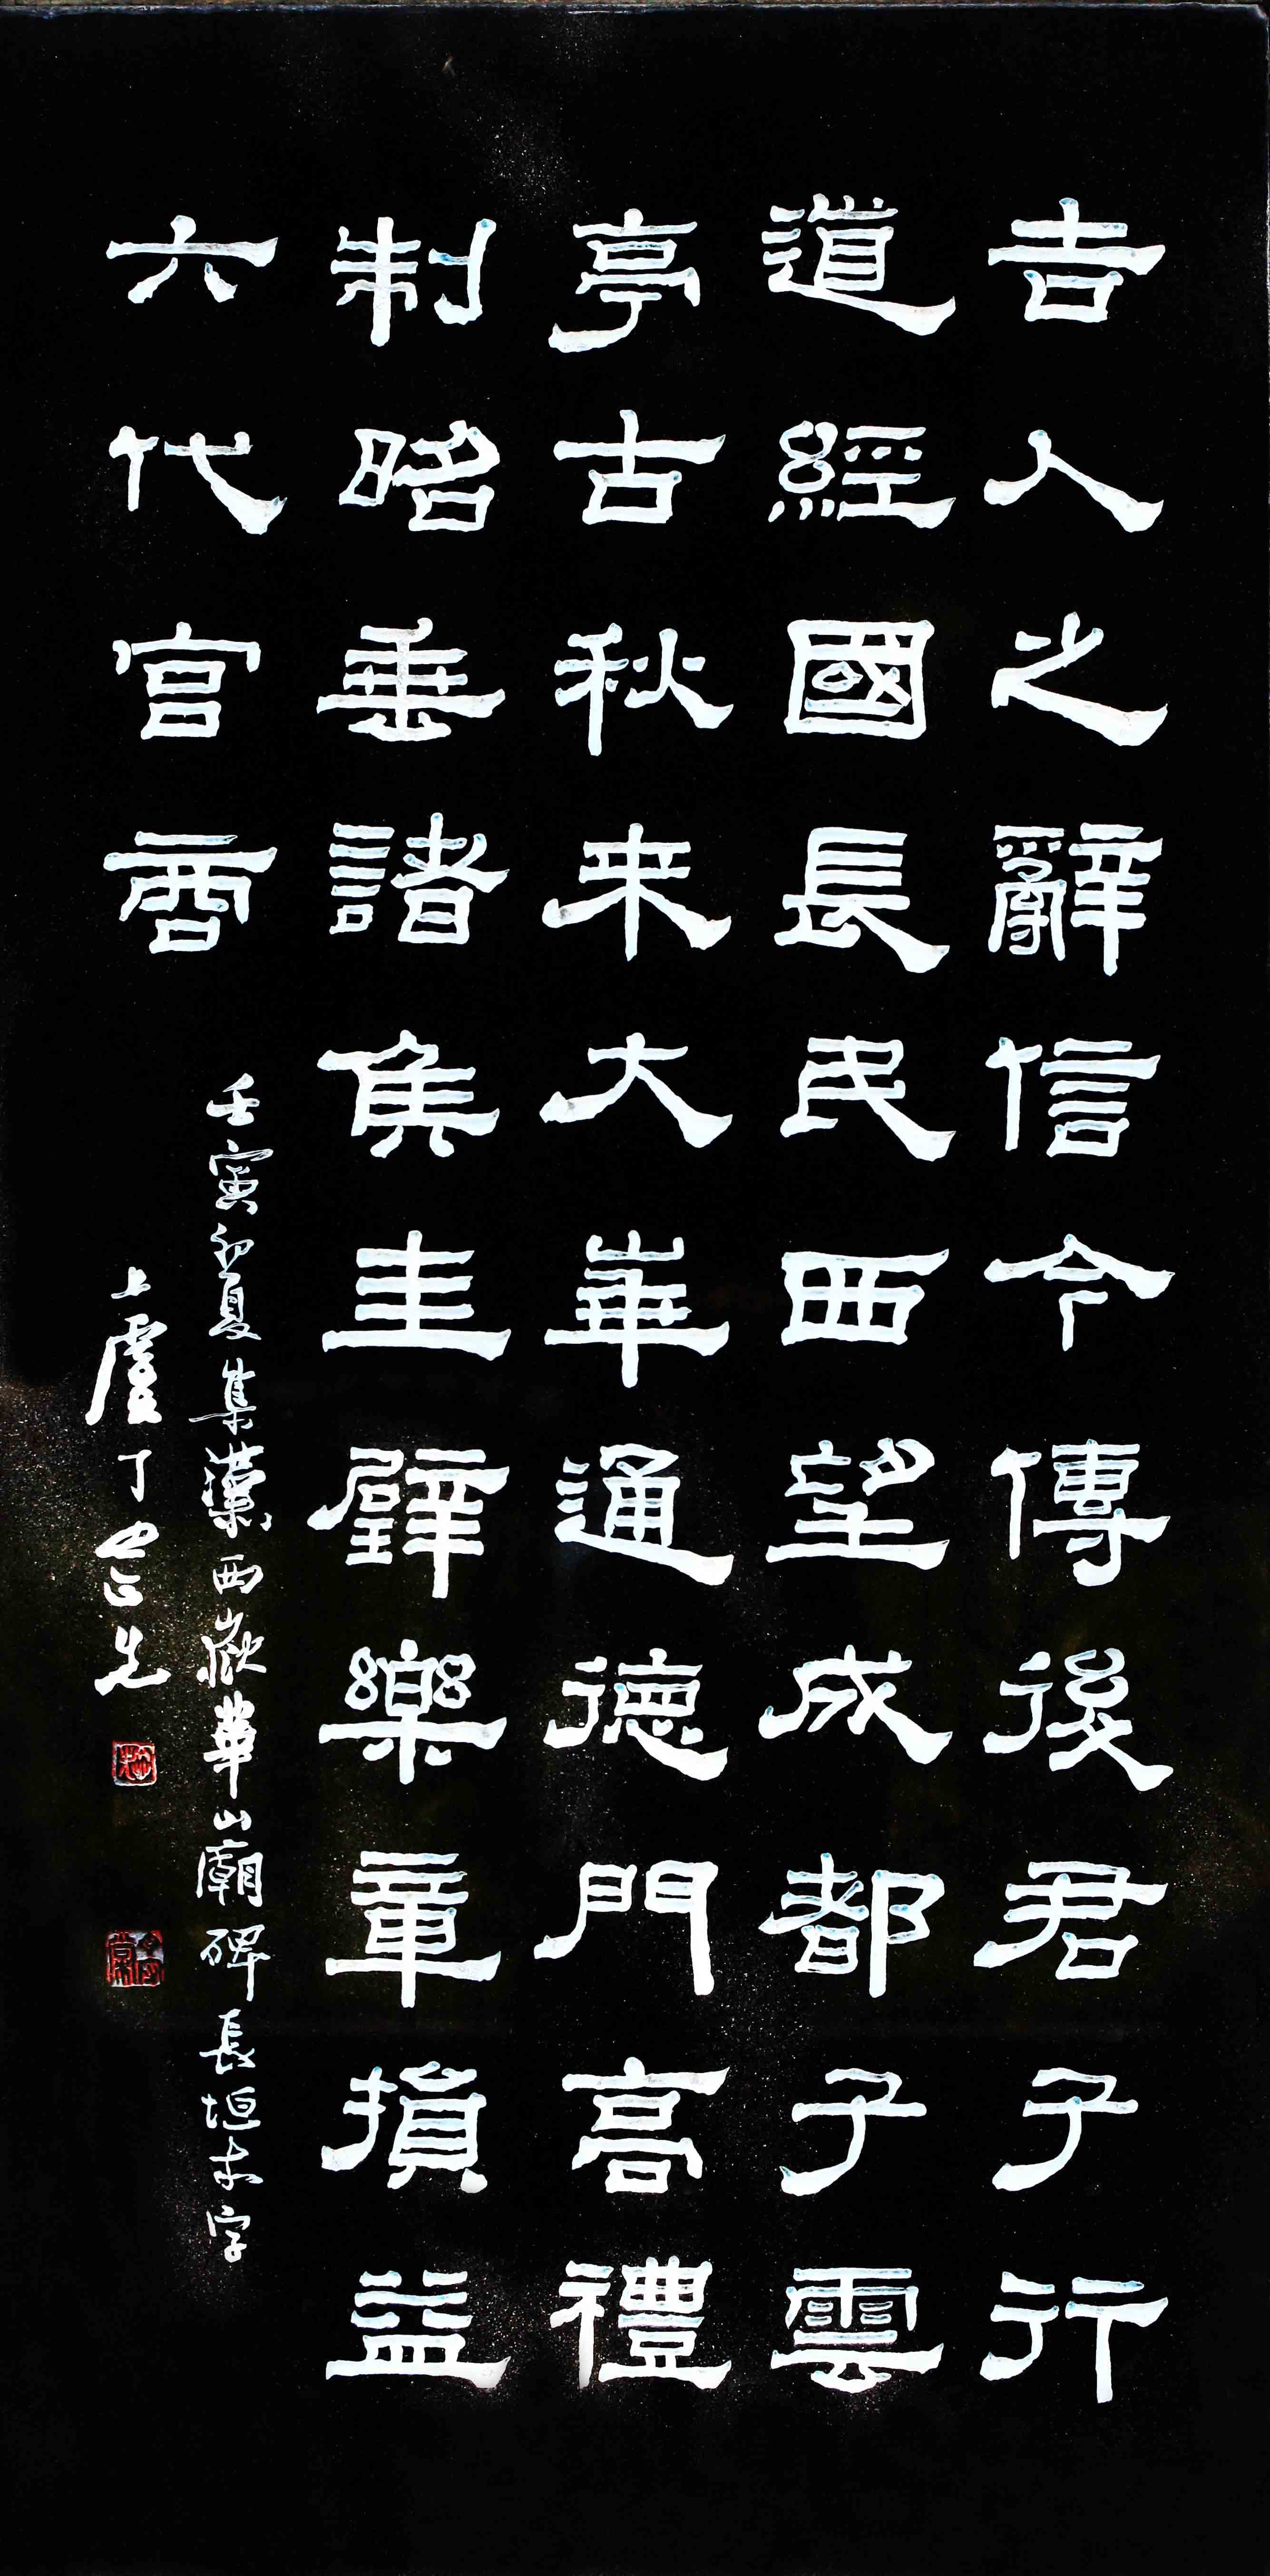 吉人之辭信今傳後君子行
道經國長民西望成都子雲
亭古秋来大華通德門高禮
制昭垂諸侯圭璧樂章損益
六代宮商
壬寅初夏集漢西嶽華山廟碑長垣本字
上虞丁